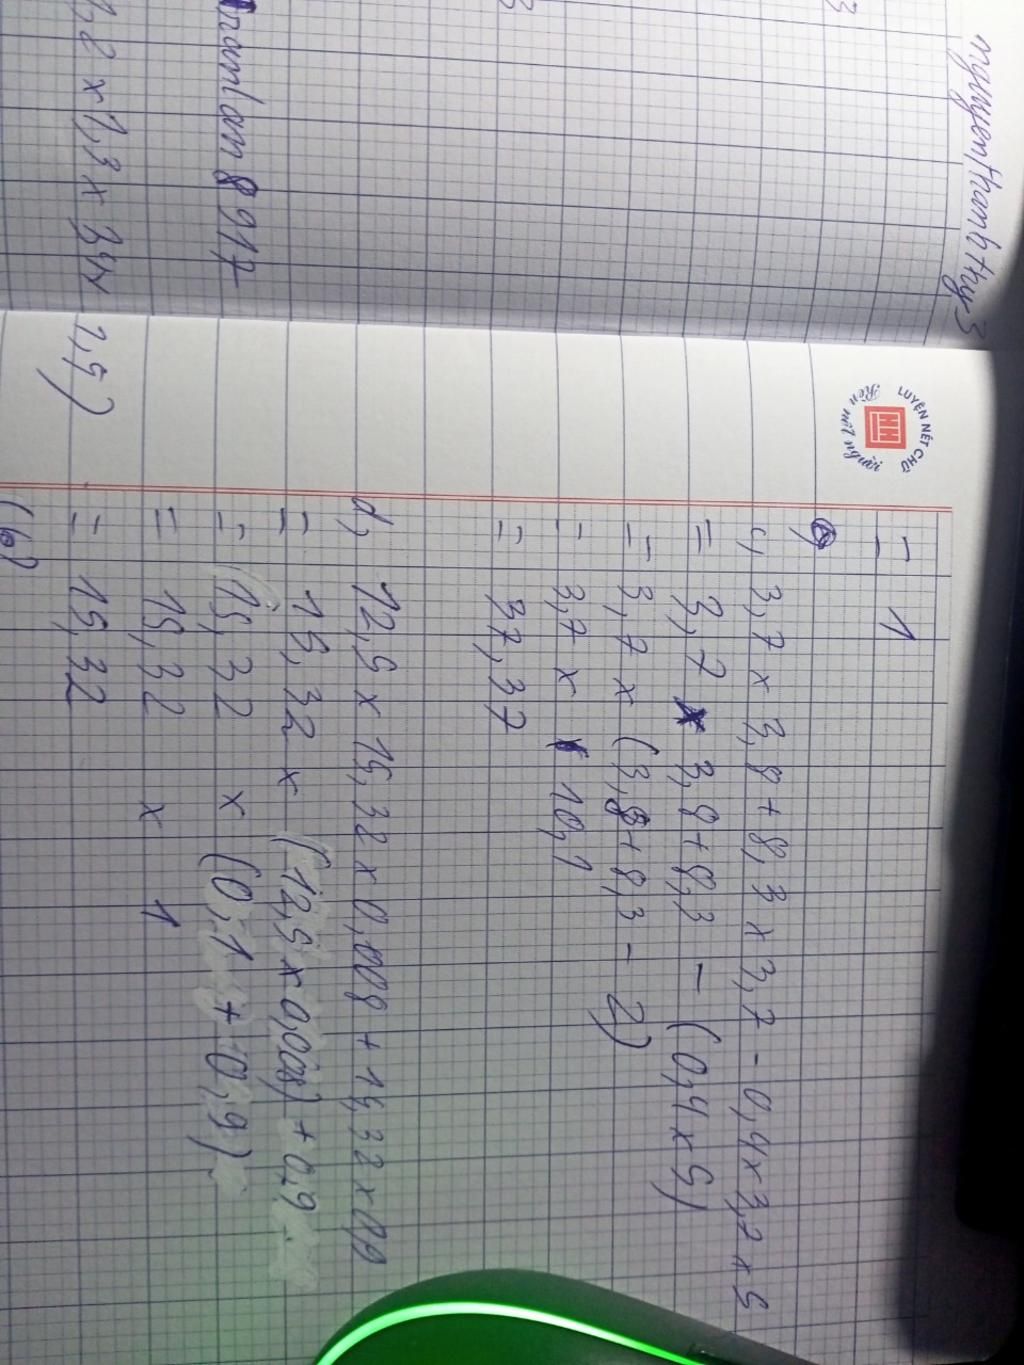 nguyenthanhthy3
3
3
tramlam8917
1,2 x 1,3 x 34x
1,5)
LUYỆN NÉT CHỮ
Rèn nết người
NH
= 1
c, 3,7 x 3,8 + 8,3 x 3,7 - 0,4 x 3,7 x 5
= 3,7 x 3,8 + 8,3 - (0,4 x 5)
= 3,7 x (3,8 + 8,3 - 2)
= 3,7 x 10,1
= 37,37
d, 12,5 x 15,32 x 0,008 + 15,32 x 0,9
= 15,32 x (12,5 x 0,008) + 0,9
= 15,32 x (0,1 + 0,9)
= 15,32 x 1
= 15,32
(6)